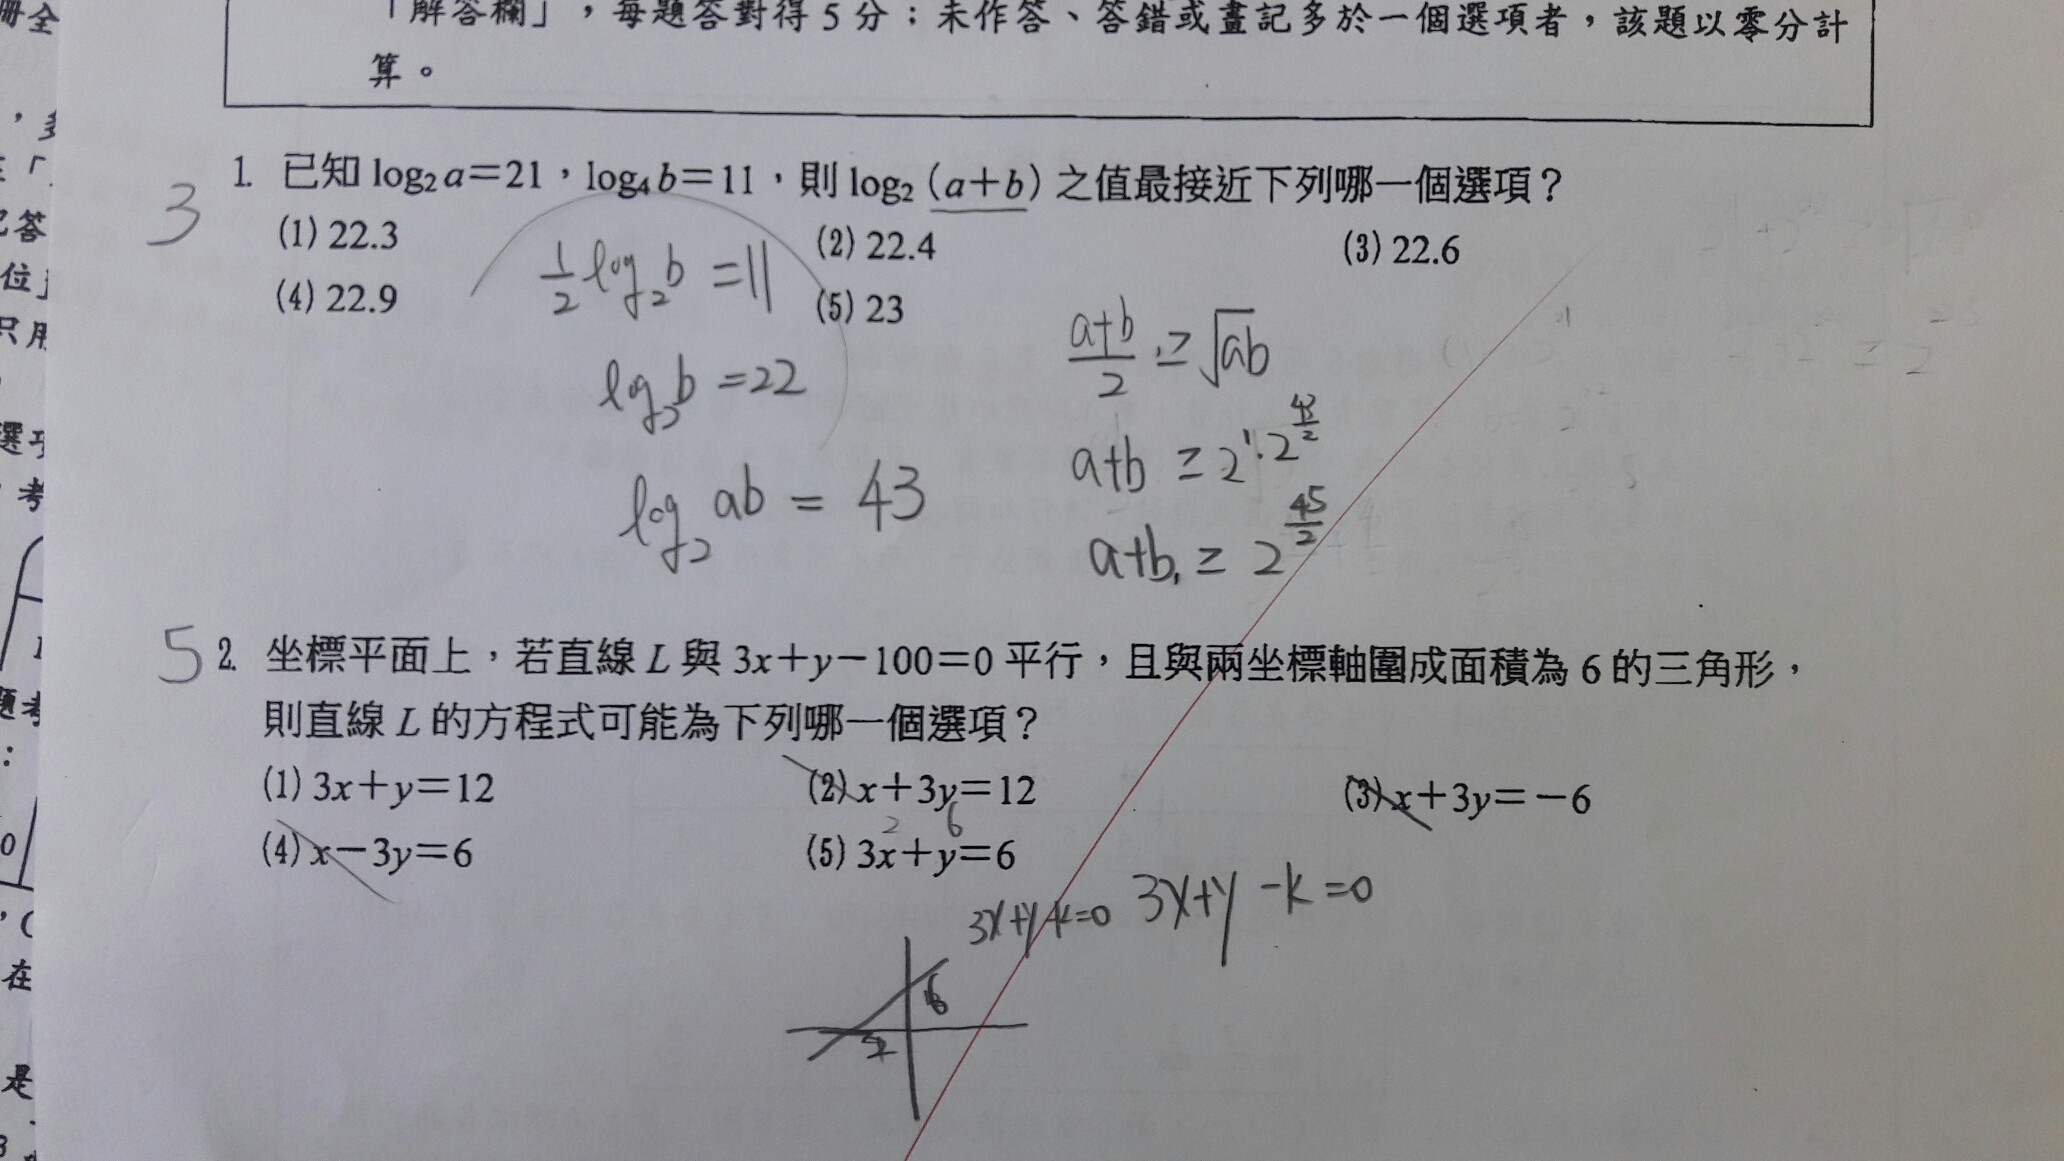 「解答欄」，每題答對得5分；未作答、答錯或畫記多於一個選項者，該題以零分計
算。
3
1. 已知 log₂ a=21，log₄ b=11，則 log₂ (a+b) 之值最接近下列哪一個選項？
(1) 22.3 (2) 22.4 (3) 22.6
(4) 22.9 (5) 23
½ log₂ b = 11
log₂ b = 22
log₂ ab = 43
a+b/2 ≥ √ab
a+b ≥ 2¹·2^(43/2)
a+b ≥ 2^(45/2)
5
2. 坐標平面上，若直線 L 與 3x+y−100=0 平行，且與兩坐標軸圍成面積為 6 的三角形，
則直線 L 的方程式可能為下列哪一個選項？
(1) 3x+y=12 (2) x+3y=12 (3) x+3y=−6
(4) x−3y=6 (5) 3x+y=6
2 6
3x+y-k=0 3x+y-k=0
6